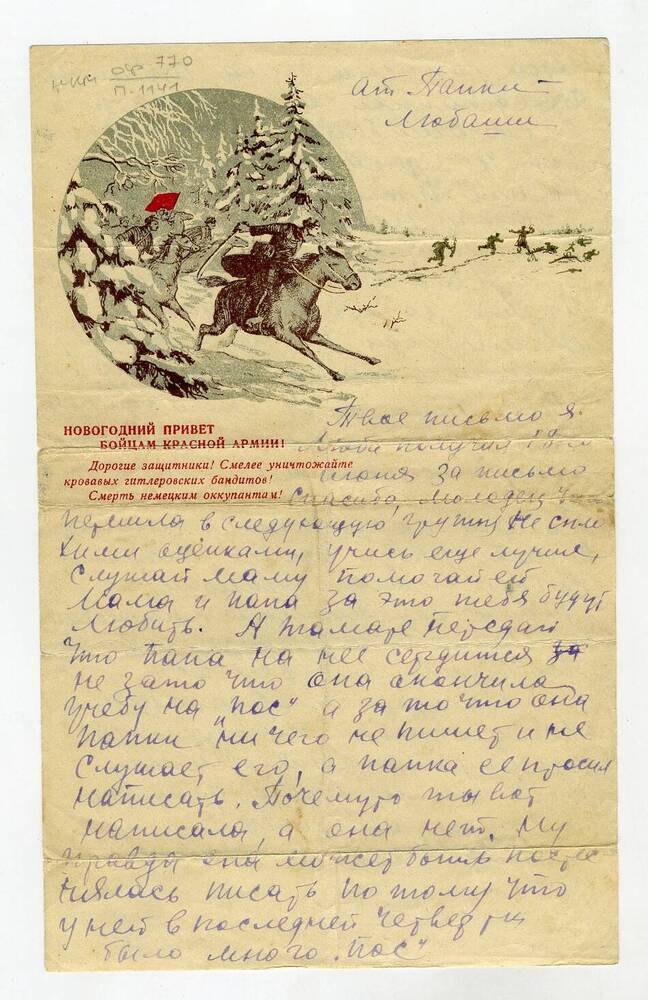 ОФ 770
П-1141
от Папки
Любаши
НОВОГОДНИЙ ПРИВЕТ
БОЙЦАМ КРАСНОЙ АРМИИ!
Дорогие защитники! Смелее уничтожайте
кровавых гитлеровских бандитов!
Смерть немецким оккупантам!
Твое письмо я
Люба получил 18го
июня за письмо
спасибо, молодец
перешла в следующую группу не спло
хими оценками, учись еще лучше,
слушай маму помогай ей
мама и папа за это тебя будут
любить. А Тамаре передай
что папа на нее сердится за
не зато что она окончила
учебу на "пос" а за то что она
папки ничего не пишет и не
слушает его, а папка ее просил
написать. Почемуто ты вот
написала, а она нет. Ну
правда она может быть постес
нялась писать по тому что
у ней в последней четверти
было много "пос"